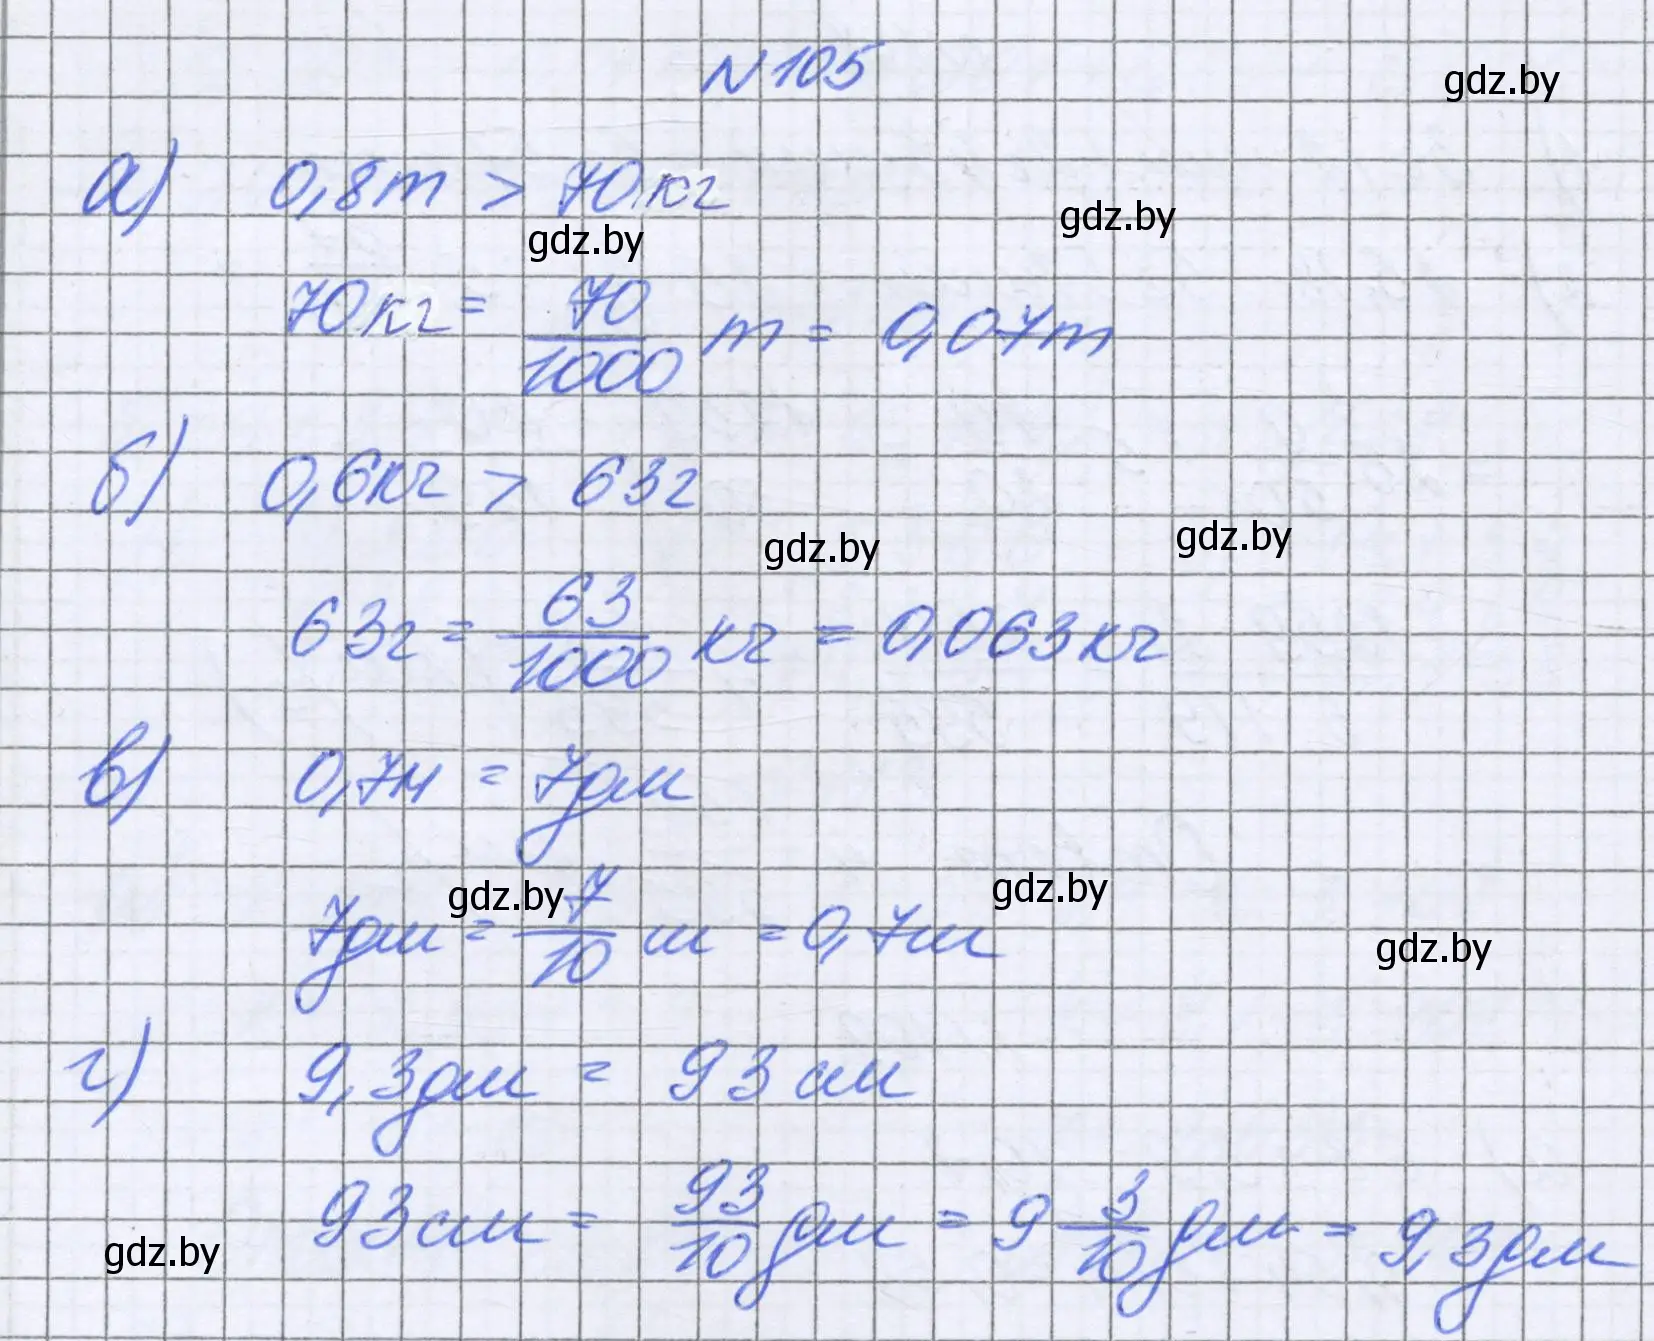 N 105
gdz.by
а) 0,8т > 70кг
gdz.by
gdz.by
70кг = 70/1000 т = 0,07т
б) 0,6кг > 63г
gdz.by
gdz.by
63г = 63/1000 кг = 0,063кг
в) 0,7м = 7дм
gdz.by
gdz.by
7дм = 7/10 м = 0,7м
gdz.by
г) 9,3дм = 93см
93см = 93/10 дм = 9 3/10 дм = 9,3дм
gdz.by